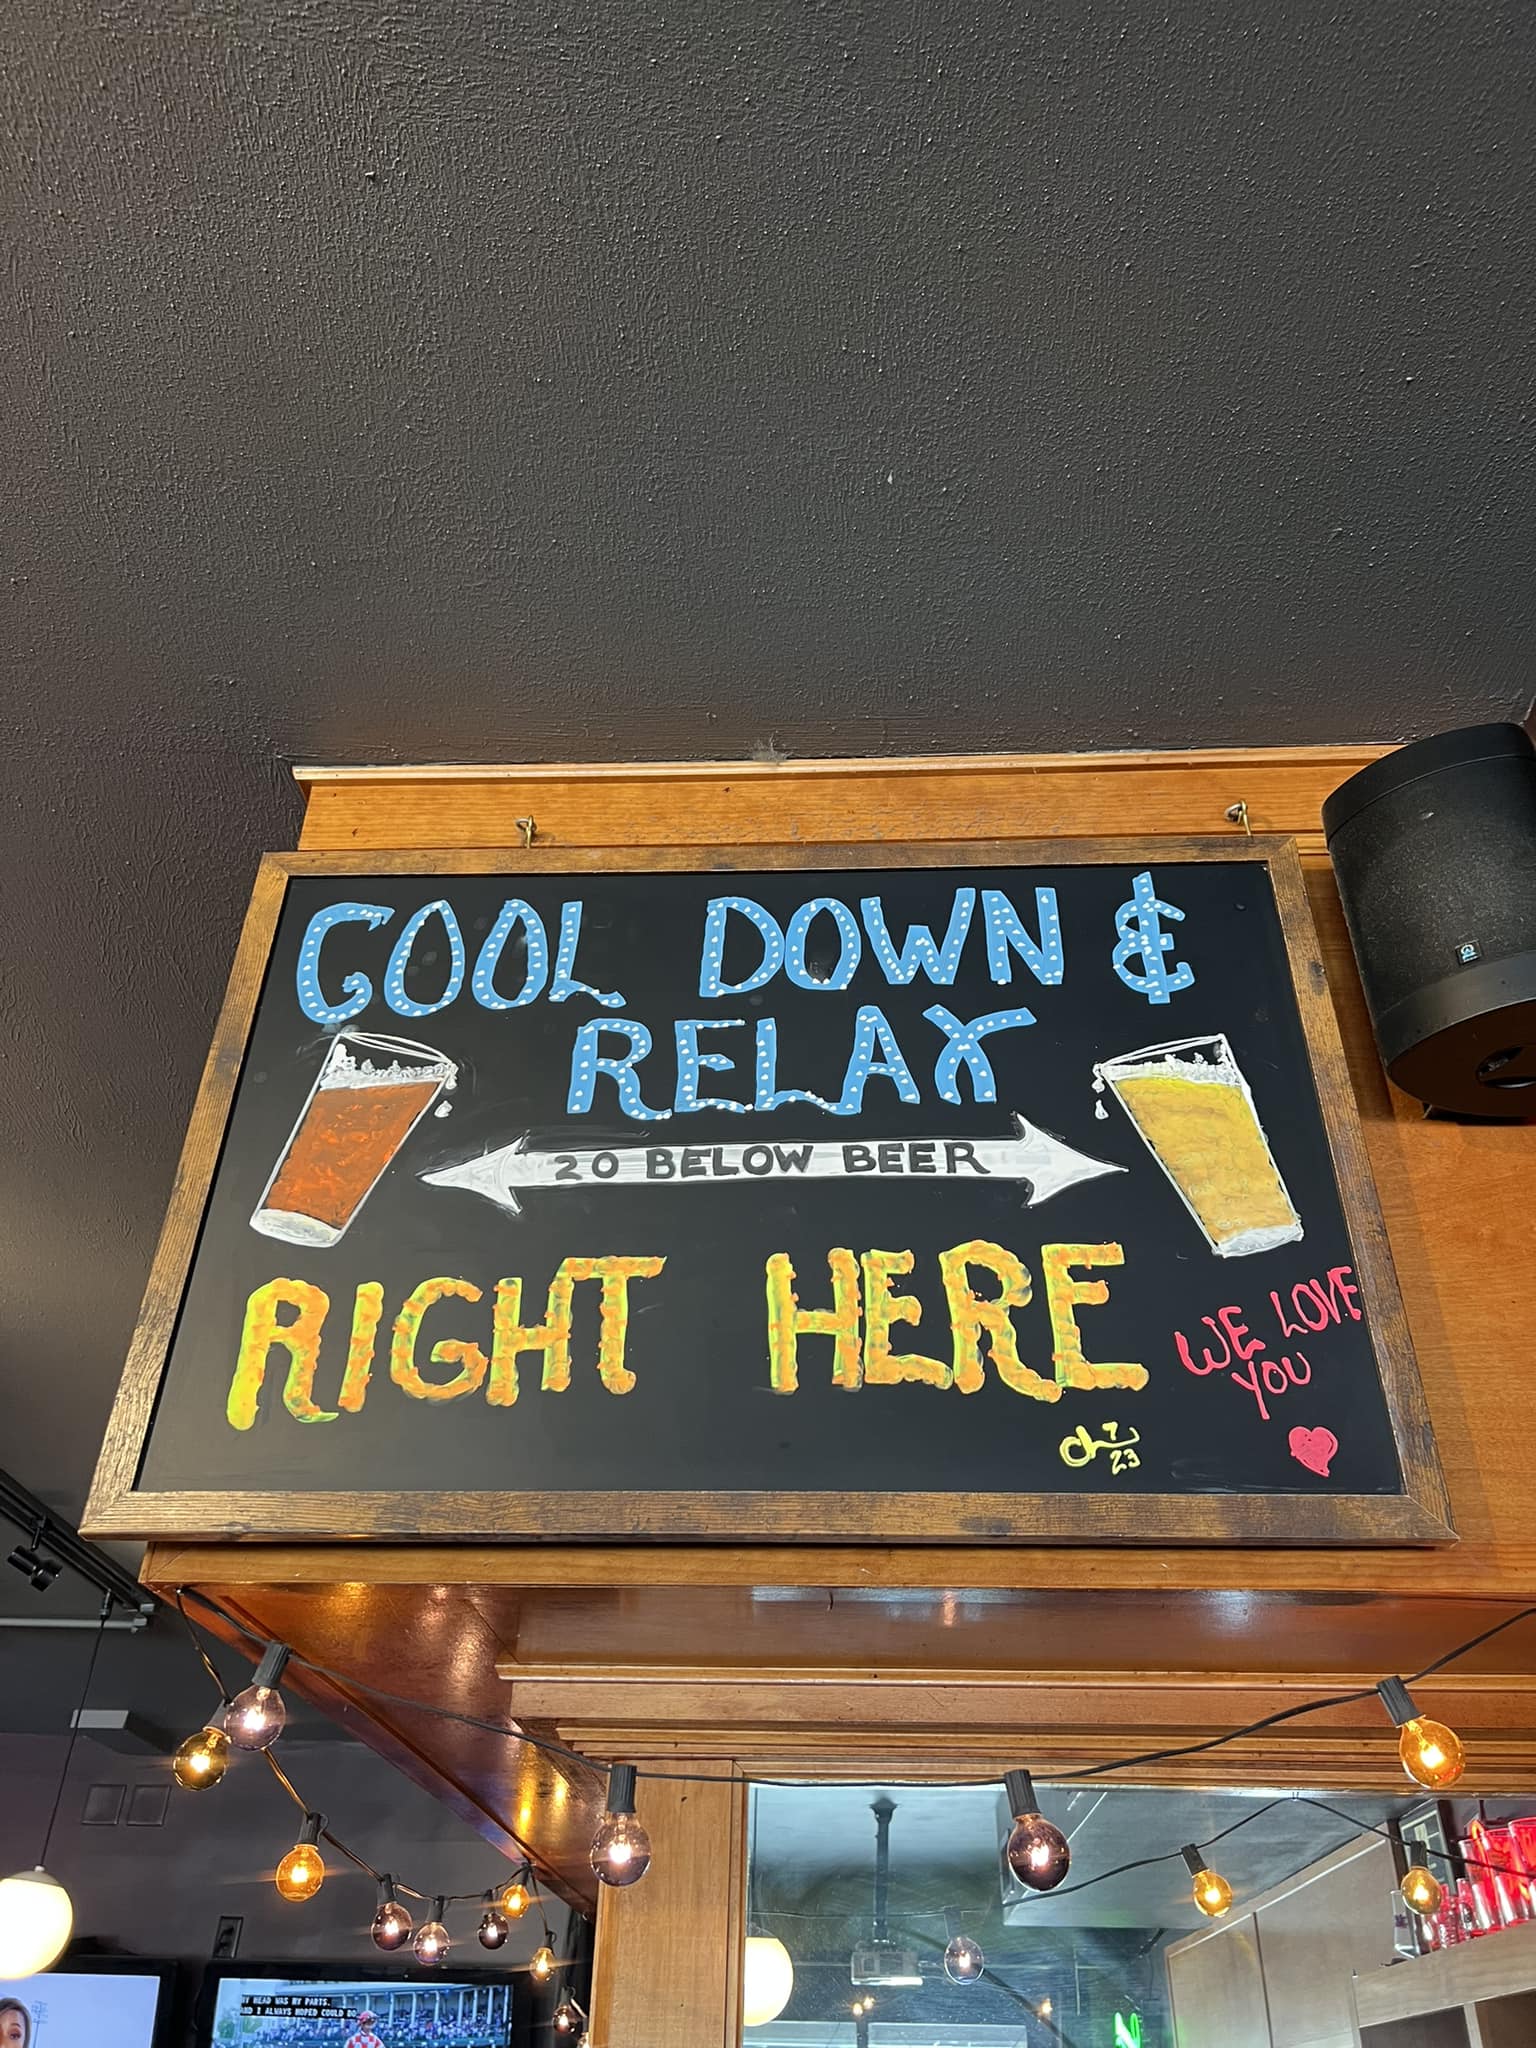 COOL DOWN &
RELAX
20 BELOW BEER
RIGHT HERE
WE LOVE
YOU
7
23
MY HEAD WAS MY PARTS.
AND I ALWAYS HOPED COULD DO